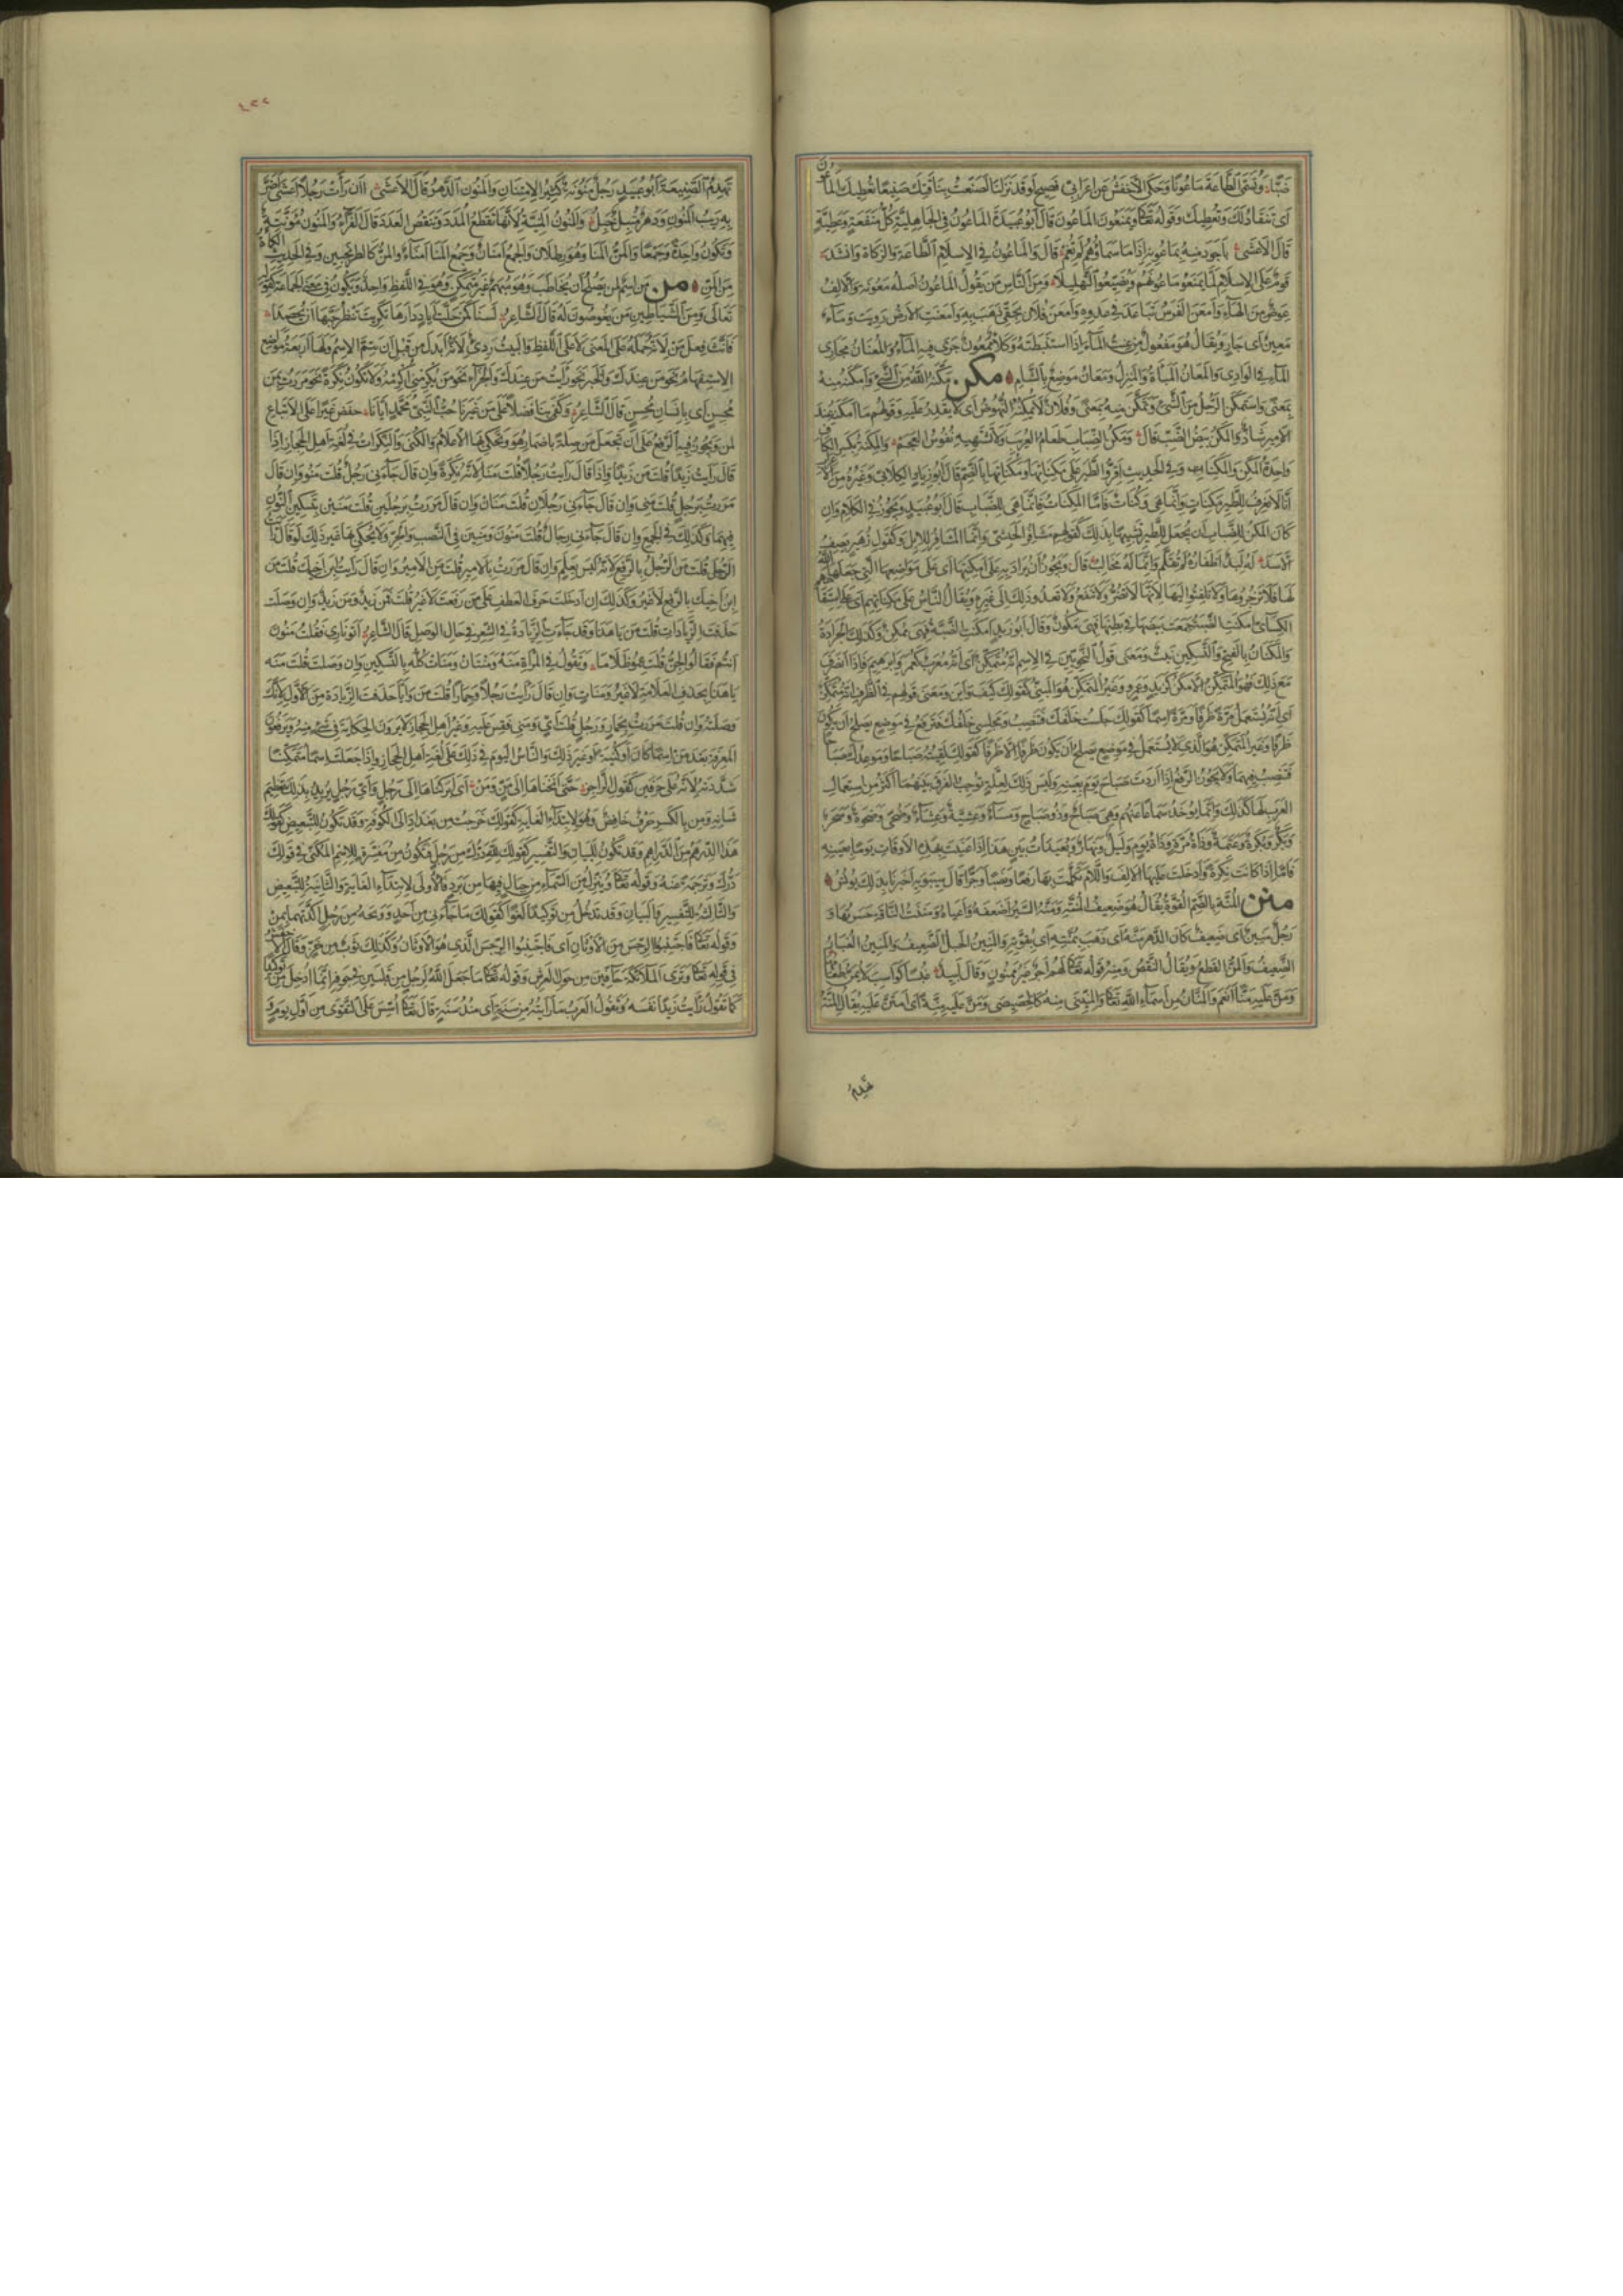 ضبا وتسقي الطاعة ماعونا وحكى الأخفش عن أعرابي فصيح لو قد نزلنا لصنعت بناقتك صنيعا تعطيك الماعون
أي تنقاد لك وتعطيك وقوله تعالى ويمنعون الماعون قال أبو عبيدة الماعون في الجاهلية كل منفعة وعطية
قال الأعشى بأجود منه بماعونه إذا ما سماؤهم لم تغم قال والماعون في الإسلام الطاعة والزكاة وأنشد
قوم على الإسلام لما يمنعوا ماعونهم ويضيعوا التهليلا ومن الناس من يقول الماعون أصله معونة والألف
عوض من الهاء وأمعن الفرس تباعد في عدوه وأمعن فلان بحقي ذهب به وأمعنت الأرض رويت وماء
معين أي جار ويقال هو مفعول من عنت الماء إذا استنبطته وكلأ ممعون جرى فيه الماء والمعنان مجاري
الماء في الوادي والمعان المباءة والمنزل ومعان موضع بالشام مكن مكنه الله من الشيء وأمكنه منه
بمعنى واستمكن الرجل من الشيء وتمكن منه بمعنى وفلان لا يمكنه النهوض أي لا يقدر عليه وقولهم ما أمكنه عند
الأمير شاذ والمكن بيض الضب قال ومكن الضباب طعام العريب ولا تشتهيه نفوس العجم والمكنة بكسر الكاف
واحدة المكن والمكنات وفي الحديث أقروا الطير على مكناتها ومكناتها بالضم قال أبو زياد الكلابي وغيره من الأعراب
إنا لا نعرف للطير مكنات وإنما هي وكنات فأما المكنات فإنما هي للضباب قال أبو عبيد ويجوز في الكلام وإن
كان المكن للضباب أن يجعل للطير تشبيها بذلك كقولهم مشافر الحبش وإنما المشافر للإبل وكقول زهير يصف
الأسد له لبد أظفاره لم تقلم وإنما له مخالب قال ويجوز أن يراد به على أمكنتها أي على مواضعها التي جعلها الله
لها فلا تزجروها ولا تلتفتوا إليها لأنها لا تضر ولا تنفع ولا تعدوا ذلك إلى غيره ويقال الناس على مكناتهم أي على استقامتهم
الكسائي أمكنت الضبة جمعت بيضها في بطنها فهي مكون وقال أبو زيد أمكنت الضبة فهي ممكن وكذلك الجرادة
والمكنان بالفتح والتسكين نبت ومعنى قول النحويين في الاسم إنه متمكن أي إنه معرب كعمر وإبراهيم فإذا انصرف
مع ذلك فهو المتمكن الأمكن كزيد وعمرو وغير المتمكن هو المبني كقولك كيف وأين ومعنى قولهم في الظرف إنه متمكن
أي إنه يستعمل مرة ظرفا ومرة اسما كقولك جلست خلفك فتنصب ومجلسي خلفك فترفع في موضع يصلح أن يكون
ظرفا وغير المتمكن هو الذي لا يستعمل في موضع يصلح أن يكون ظرفا إلا ظرفا كقولك لقيته صباحا وموعدك صباحا
فتنصب فيهما ولا يجوز الرفع إذا أردت صباح يوم بعينه وليس ذلك لعلة توجب الفرق بينهما أكثر من استعمال
العرب لها كذلك وإنما يؤخذ سماعا عنهم وهي صباح وذو صباح ومساء وعشية وعشاء وضحى وضحوة وسحر
وبكر وبكرة وعتمة وذات مرة وذات يوم وليل ونهار وبعيدات بين هذا إذا عنيت بهذه الأوقات يوما بعينه
فأما إذا كانت نكرة أو أدخلت عليها الألف واللام تكلمت بها رفعا ونصبا وجرا قال سيبويه أخبرنا بذلك يونس
منن المنة بالضم القوة يقال هو ضعيف المنة ومنه السير أضعفه وأعياه ومننت الناقة حسرتها و
رجل منين أي ضعيف كأن الدهر منه أي ذهب بمنته أي بقوته والمنين الحبل الضعيف والمنين الغبار
الضعيف والمن القطع ويقال النقص ومنه قوله تعالى لهم أجر غير ممنون وقال لبيد غبسا كواسب لا يمن طعامها
ومن عليه منا أنعم والمنان من أسماء الله تعالى والمنيني منه كالخصيصى ومن عليه منة أي امتن عليه يقال المنة
تهدم
٤٢٢
تهدم الصنيعة أبو عبيد رجل منونة كثير الامتنان والمنون الدهر قال الأعشى أأن رأت رجلا أعشى أضر
به ريب المنون ودهر متبل خبل والمنون المنية لأنها تقطع المدد وتنقص العدد قال الفراء والمنون مؤنثة
وتكون واحدة وجمعا والمن المنا وهو رطلان والجمع أمنان وجمع المنا أمناء والمن كالطرنجبين وفي الحديث الكمأة
من المن من من اسم لمن يصلح أن يخاطب وهو مبهم غير متمكن وهو في اللفظ واحد ويكون في معنى الجماعة كقوله
تعالى ومن الشياطين من يغوصون له قال الشاعر لسنا كمن حلت إياد دارها تكريت تنظر حبها أن يحصدا
فأنث فعل من لأنه حمله على المعنى لا على اللفظ والبيت رديء لأنه أبدل من قبل أن يتم الاسم ولها أربعة مواضع
الاستفهام نحو من عندك والخبر نحو رأيت من عندك والجزاء نحو من يكرمني أكرمه ولا تكون نكرة نحو مررت بمن
محسن أي بإنسان محسن قال الشاعر وكفى بنا فضلا على من غيرنا حب النبي محمد إيانا خفض غير على الاتباع
لمن ويجوز فيه الرفع على أن تجعل من صلة بإضمار هو وتحكي بها الأعلام والكنى والنكرات في لغة أهل الحجاز إذا
قال رأيت زيدا قلت من زيدا وإذا قال رأيت رجلا قلت منا لأنه نكرة وإن قال جاءني رجل قلت منو وإن قال
مررت برجل قلت مني وإن قال جاءني رجلان قلت منان وإن قال مررت برجلين قلت منين بتسكين النون
فيهما وكذلك في الجمع وإن قال جاءني رجال قلت منون ومنين في النصب والجر ولا يحكى بها غير ذلك لو قال رأيت
الرجل قلت من الرجل بالرفع لأنه ليس بعلم وإن قال مررت بالأمير قلت من الأمير وإن قال رأيت ابن أخيك قلت من
ابن أخيك بالرفع لا غير وكذلك إن أدخلت حرف العطف على من رفعت لا غير قلت فمن زيد ومن زيد وإن وصلت
حذفت الزيادات قلت من يا هذا وقد جاءت الزيادة في الشعر في حال الوصل قال الشاعر أتوا ناري فقلت منون
أنتم فقالوا الجن قلت عموا ظلاما وتقول في المرأة منه ومنتان ومنات كله بالتسكين وإن وصلت قلت منة
يا هذا بحذف العلامة لا غير ومنات وإن قال رأيت رجلا وحمارا قلت من وأيا حذفت الزيادة من الأول لأنك
وصلته وإن قلت مررت بحمار ورجل قلت أي ومني فقس عليه وغير أهل الحجاز لا يرون الحكاية في شيء منه ويرفعون
المعرفة بعد من اسما كان أو كنية أو غير ذلك والناس اليوم في ذلك على لغة أهل الحجاز وإذا جعلت اسما متمكنا
شددته لأنه على حرفين كقول الراجز حتى أنخناها إلى من ومن أي أبركناها إلى رجل وأي رجل يريد بذلك تعظيم
شأنه ومن بالكسر حرف خافض وهو لابتداء الغاية كقولك خرجت من بغداد إلى الكوفة وقد تكون للتبعيض كقولك
هذا الدرهم من الدراهم وقد تكون للبيان والتفسير كقولك لله درك من رجل فتكون من مفسرة للاسم المكني في قولك
درك وترجمة عنه وقوله تعالى وينزل من السماء من جبال فيها من برد فالأولى لابتداء الغاية والثانية للتبعيض
والثالثة للتفسير والبيان وقد تدخل من توكيدا لغوا كقولك ما جاءني من أحد وويحه من رجل أكدتهما بمن
وقوله تعالى فاجتنبوا الرجس من الأوثان أي فاجتنبوا الرجس الذي هو الأوثان وكذلك ثوب من خز وقال الأخفش
في قوله تعالى وترى الملائكة حافين من حول العرش وقوله تعالى ما جعل الله لرجل من قلبين في جوفه إنما أدخل من توكيدا
كما تقول رأيت زيدا نفسه وتقول العرب ما رأيته من سنة أي منذ سنة قال تعالى أسس على التقوى من أول يوم و